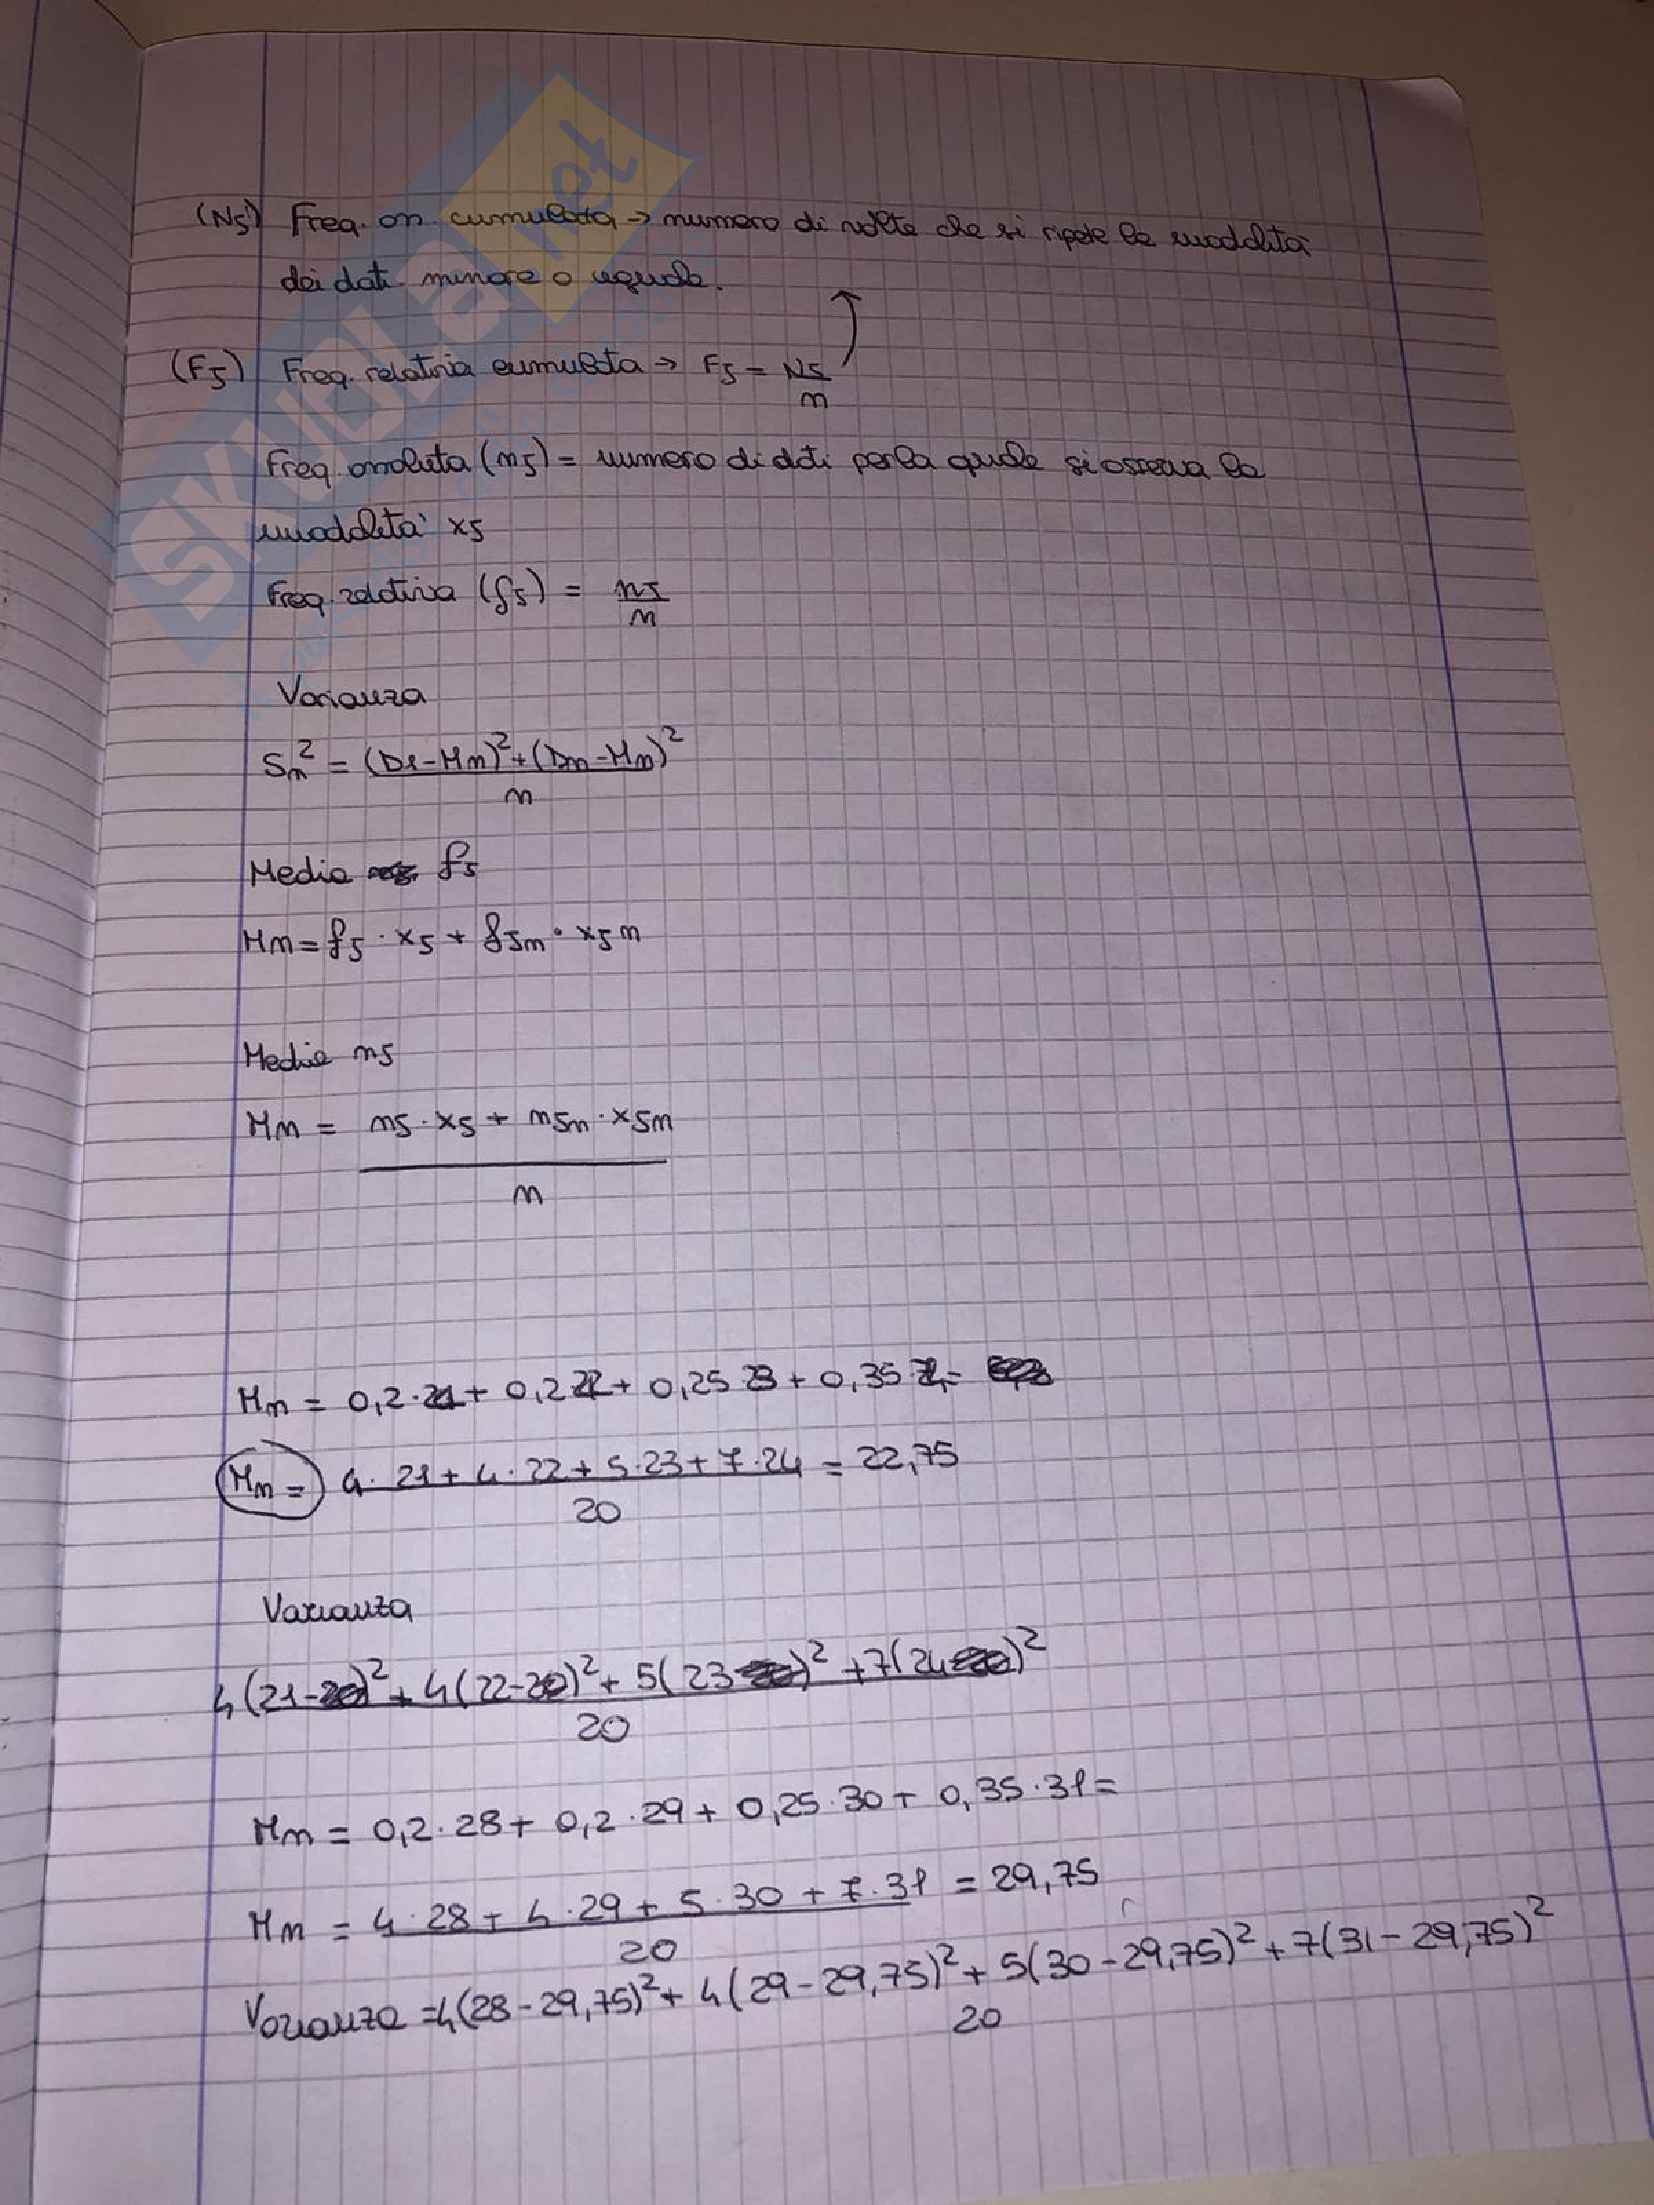 SKUOLA.net
(N5) Freq. ass. cumulata → numero di volte che si ripete la modalità
dei dati minore o uguale.
(F5) Freq. relativa cumulata → F5 = N5/n
Freq. assoluta (n5) = numero di dati per la quale si osserva la
modalità x5
Freq. relativa (f5) = n5/n
Varianza
Sn² = (D1-Mn)²+(Dn-Mn)²/n
Media f5
Mn = f5 · x5 + f5n · x5n
Media n5
Mn = n5 · x5 + n5n · x5n
n
Mn = 0,2 · 21 + 0,2 22 + 0,25 23 + 0,35 =
Mn = 4 · 21 + 4 · 22 + 5 · 23 + 7 · 24 = 22,75
20
Varianza
4(21- )² + 4(22- )² + 5(23 )² + 7(24 )²
20
Mn = 0,2 · 28 + 0,2 · 29 + 0,25 · 30 + 0,35 · 31 =
Mn = 4 · 28 + 4 · 29 + 5 · 30 + 7 · 31 = 29,75
20
Varianza = 4(28 - 29,75)² + 4(29 - 29,75)² + 5(30 - 29,75)² + 7(31 - 29,75)²
20